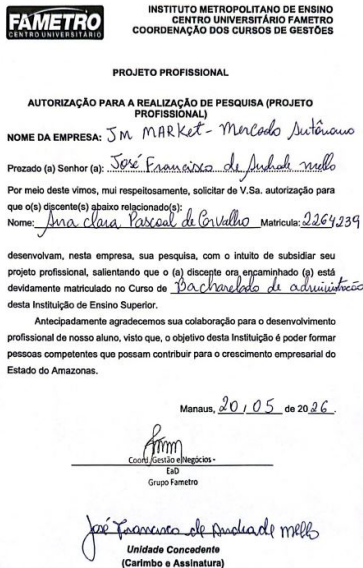 FAMETRO
CENTRO UNIVERSITÁRIO
INSTITUTO METROPOLITANO DE ENSINO
CENTRO UNIVERSITÁRIO FAMETRO
COORDENAÇÃO DOS CURSOS DE GESTÕES
PROJETO PROFISSIONAL
AUTORIZAÇÃO PARA A REALIZAÇÃO DE PESQUISA (PROJETO
PROFISSIONAL)
NOME DA EMPRESA: JM MARKet - Mercado Autônomo
Prezado (a) Senhor (a): José Francisco de Andrade mello
Por meio deste vimos, mui respeitosamente, solicitar de V.Sa. autorização para
que o(s) discente(s) abaixo relacionado(s):
Nome: Ana clara Pascoal de Carvalho Matricula: 2264239
desenvolvam, nesta empresa, sua pesquisa, com o intuito de subsidiar seu
projeto profissional, salientando que o (a) discente ora encaminhado (a) está
devidamente matriculado no Curso de Bacharelado de administração
desta Instituição de Ensino Superior.
Antecipadamente agradecemos sua colaboração para o desenvolvimento
profissional de nosso aluno, visto que, o objetivo desta Instituição é poder formar
pessoas competentes que possam contribuir para o crescimento empresarial do
Estado do Amazonas.
Manaus, 20 / 05 de 20 26.
Coord. Gestão e Negócios -
EaD
Grupo Fametro
José Francisco de Andrade mello
Unidade Concedente
(Carimbo e Assinatura)